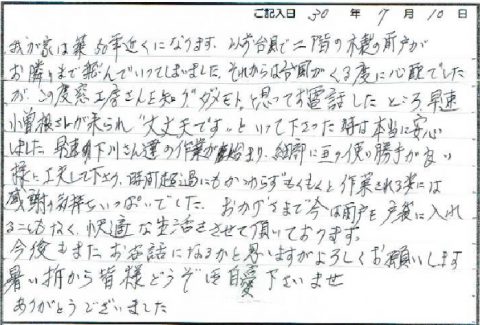 ご記入日 30 年 7 月 10 日
我が家は築50年近くになります。以前台風で二階の木製の雨戸が
お隣りまで飛んでいってしまいました。それからは台風がくる度に心配でした
が、この度窓工房さんを知り"ダメモト"と思ってお電話したところ早速
小曽根さんが来られ"大丈夫です"といって下さった時は本当に安心
しました。早速 下川さん達の作業が始まり、細部に亘り使い勝手が良い
様に工夫して下さり、時間超過にもかかわらずもくもくと作業される姿には
感謝の気持ちいっぱいでした。おかげさまで今は雨戸を戸袋に入れ
ることもなく、快適な生活をさせて頂いております。
今後もまたお世話になるかと思いますがよろしくお願いします
暑い折から皆様どうぞご自愛下さいませ
ありがとうございました